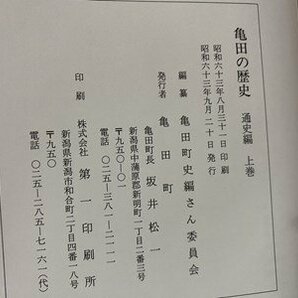 亀田の歴史 通史編 上巻
昭和六十三年八月三十一日 印刷
昭和六十三年九月二十日 発行
編纂 亀田町史編さん委員会
発行者 亀田町
亀田町長 坂井松一
新潟県中蒲原郡新明町二丁目二番三号
〒九五〇-〇一
電話 〇二五-三八一-二一一一
印刷 株式会社 第一印刷所
新潟県新潟市和合町二丁目四番一八号
〒九五〇
電話 〇二五-二八五-七一六一(代)